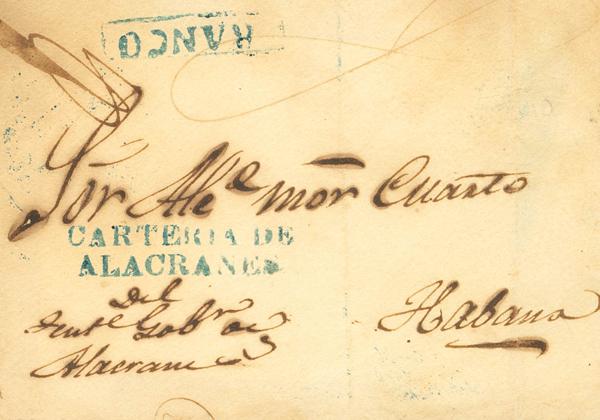 FRANCO
Sor Alce mor Cuarto
CARTERIA DE
ALACRANES
Del
Tente Gobr de
Alacranes
Habana